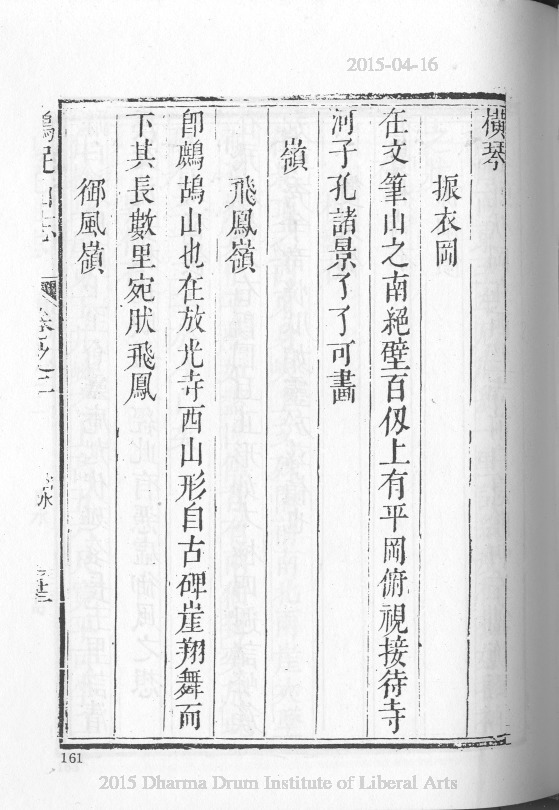 2015-04-16
橫琴
振衣岡
在文筆山之南絕壁百仭上有平岡俯視接待寺
河子孔諸景了了可畵
嶺
飛鳳嶺
卽鷓鴣山也在放光寺西山形自古碑崖翔舞而
下其長數里宛肰飛鳳
御風嶺
山志 卷之二
161
2015 Dharma Drum Institute of Liberal Arts